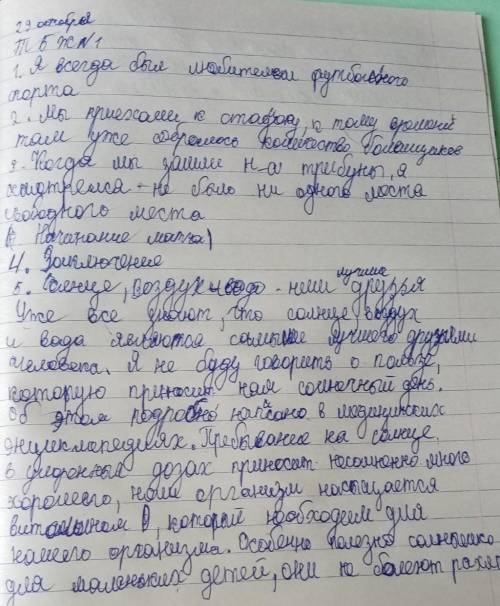 29 октября
ТБЖ №1
1. Я всегда был любителем футбольного
спорта
2. Мы приехали к стадиону, к тому времени
там уже собралось количество болельщиков
3. Когда мы зашли н-а трибуны, я
- не было ни одного места
свободного места
(Начинание матча)
4. Заключение
5. Солнце, воздух и вода - наши лучшие друзья
Уже все знают, что солнце воздух
и вода являются самыми лучшего друзьями
человека. Я не буду говорить о пользе,
которую приносит нам солнечный день.
Об этом подробно написано в медицинских
энциклопедиях. Пребывание на солнце
в умеренных дозах приносит несомненно много
хорошего, наш организм насыщается
витамином D, который необходим для
нашего организма. Особенно полезно солнышко
для маленьких детей, они не болеют